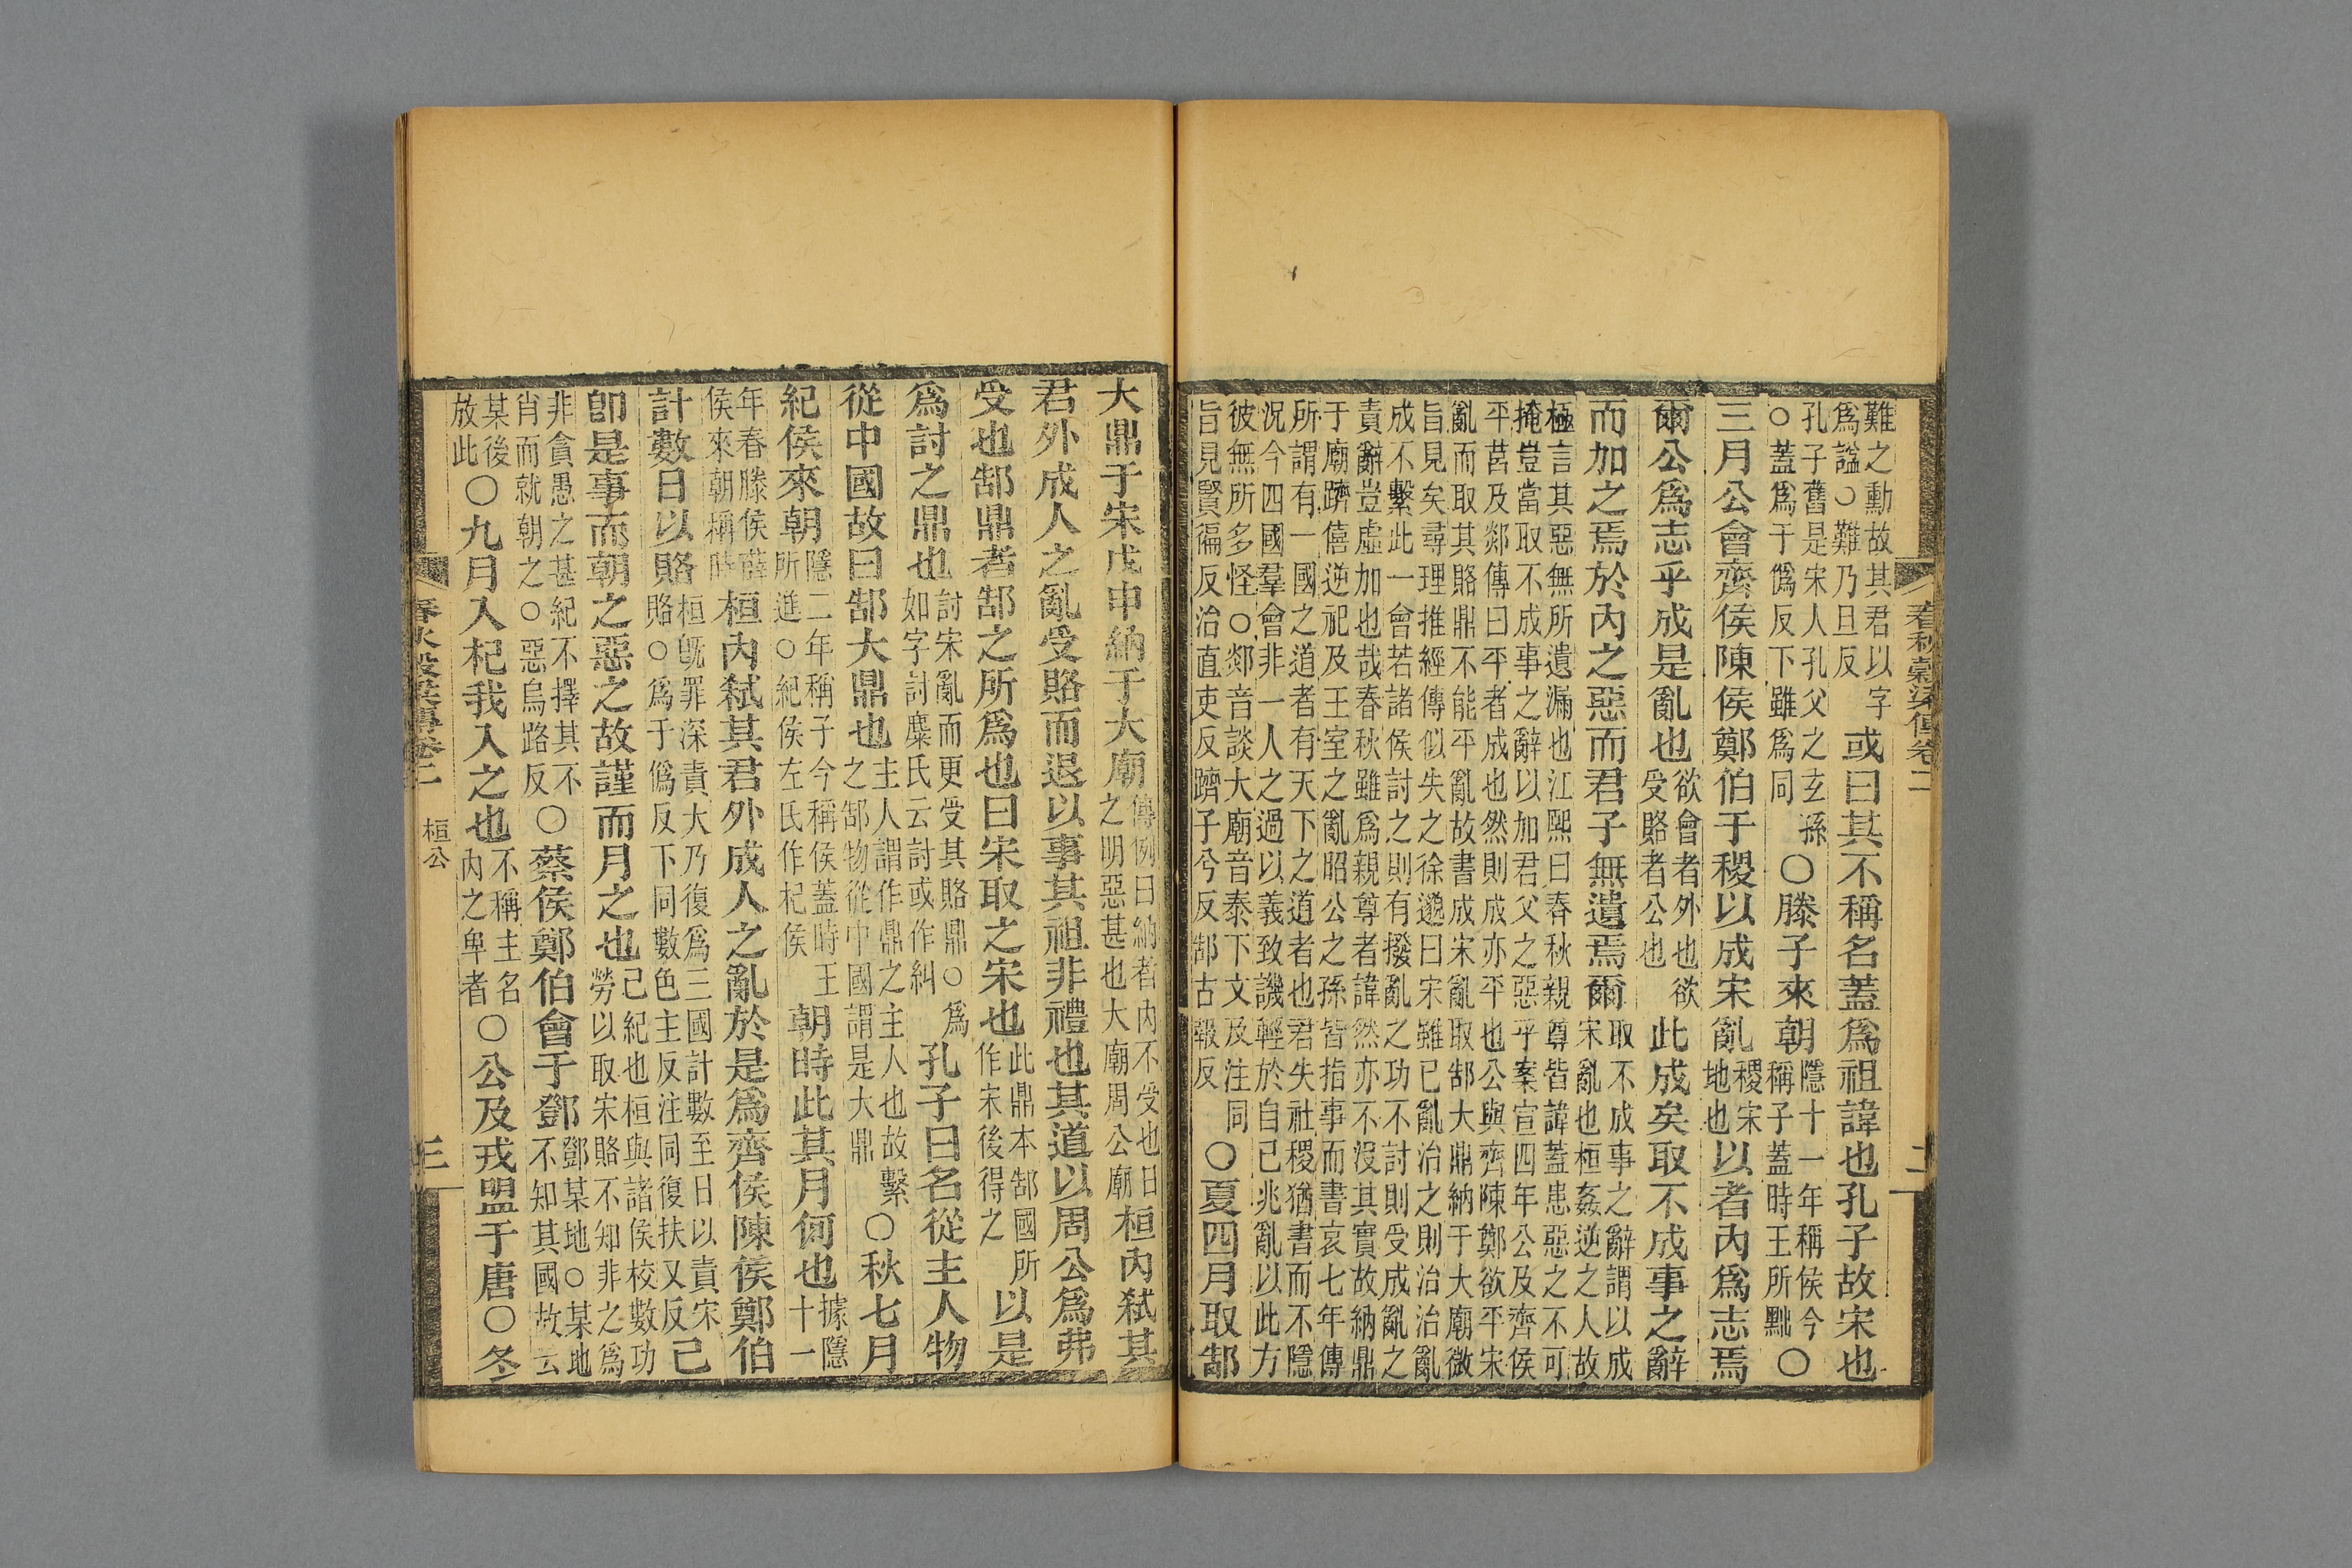 春秋穀梁傳卷二 二
難之勳故其君以字爲諡○難乃旦反或曰其不稱名蓋爲祖諱也孔子故宋也
孔子舊是宋人孔父之玄孫○蓋爲于僞反下雖爲同○滕子來朝隱十一年稱侯今稱子蓋時王所黜○
三月公會齊侯陳侯鄭伯于稷以成宋亂稷宋地也以者內爲志焉
爾公爲志乎成是亂也欲會者外也欲受賂者公也此成矣取不成事之辭
而加之焉於內之惡而君子無遺焉爾取不成事之辭謂以成宋亂也桓姦逆之人故
極言其惡無所遺漏也江熙曰春秋親尊皆諱蓋患惡之不可掩豈當取不成事之辭以加君父之惡乎案宣四年公及齊侯
平莒及郯傳曰平者成也然則成亦平也公與齊陳鄭欲平宋亂而取其賂鼎不能平亂故書成宋亂取郜大鼎納于大廟微
旨見矣尋理推經傳似失之徐邈曰宋雖已亂治之則治治亂成不繫此一會若諸侯討之則有撥亂之功不討則受成亂之
責辭豈虛加也哉春秋雖爲親尊者諱然亦不沒其實故納鼎于廟躋僖逆祀及王室之亂昭公之孫皆指事而書哀七年傳
所謂有一國之道者有天下之道者也君失社稷猶書而不隱況今四國羣會非一人之過以義致譏輕於自己兆亂以此方
彼無所多怪○郯音談大廟音泰下文及注同旨見賢徧反治直吏反躋子兮反郜古報反○夏四月取郜
大鼎于宋戊申納于大廟傳例曰納者內不受也日之明惡甚也大廟周公廟桓內弒其
君外成人之亂受賂而退以事其祖非禮也其道以周公爲弗
受也郜鼎者郜之所爲也曰宋取之宋也此鼎本郜國所作宋後得之以是
爲討之鼎也討宋亂而更受其賂鼎○爲如字討麋氏云討或作糾孔子曰名從主人物
從中國故曰郜大鼎也主人謂作鼎之主人也故繫之郜物從中國謂是大鼎○秋七月
紀侯來朝隱二年稱子今稱侯蓋時王所進○紀侯左氏作杞侯朝時此其月何也據隱十一
年春滕侯薛侯來朝稱時桓內弒其君外成人之亂於是爲齊侯陳侯鄭伯
計數日以賂桓既罪深責大乃復爲三國計數至日以責宋賂○爲于僞反下同數色主反注同復扶又反己
卽是事而朝之惡之故謹而月之也己紀也桓與諸侯校數功勞以取宋賂不知非之爲
非貪愚之甚紀不擇其不肖而就朝之○惡烏路反○蔡侯鄭伯會于鄧鄧某地○某地不知其國故云
某後放此○九月入杞我入之也不稱主名內之卑者○公及戎盟于唐○冬
春秋穀梁傳卷二 桓公 三